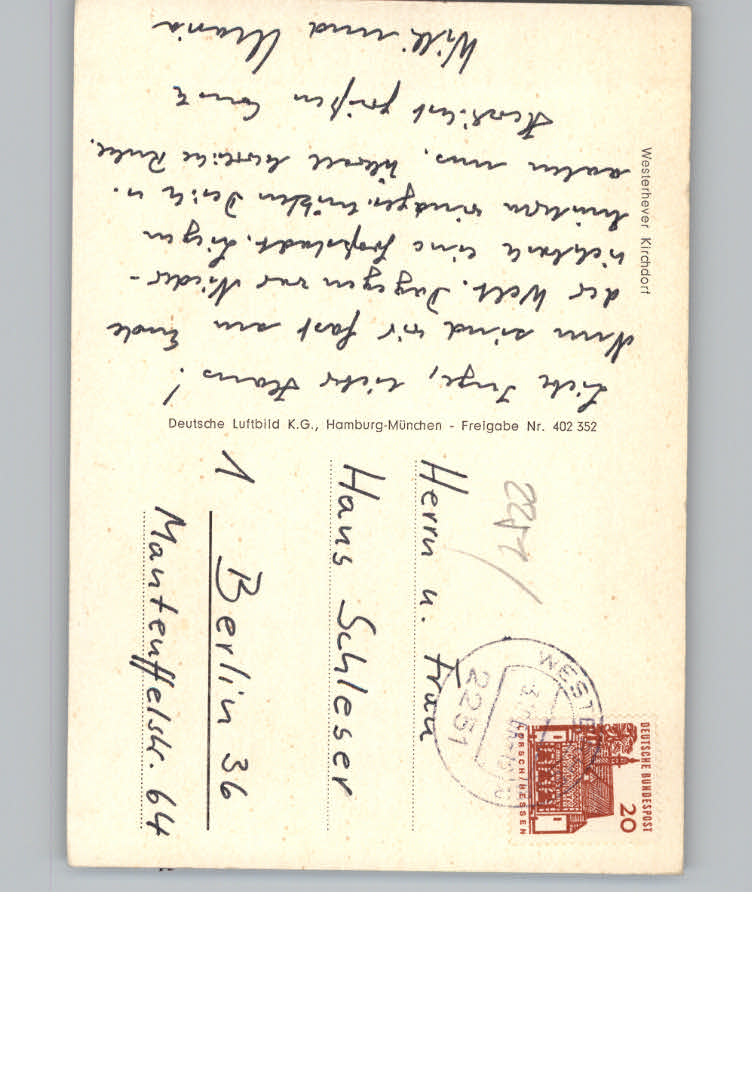 Liebe Inge, lieber Hans!
Nun sind wir fast am Ende
der Welt. Dagegen war Nieder-
eine Großstadt. Liegen
hinterm Deich u.
aalen uns. Überall herrliche Ruhe.
Herzlichst grüßen Euch
Willi und Maria
Westerhever Kirchdorf
Deutsche Luftbild K.G., Hamburg-München - Freigabe Nr. 402 352
Herrn u. Frau
Hans Schleser
1 Berlin 36
Manteuffelstr. 64
2251
WESTE
2251
DEUTSCHE BUNDESPOST
20
LORSCH/HESSEN